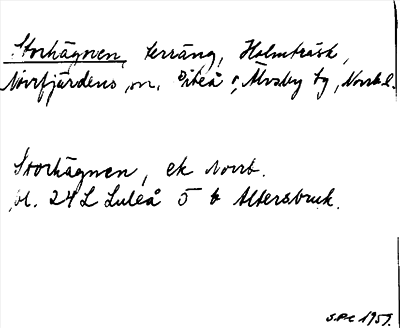 Storhägnen, terräng, Holmträsk,
Norrfjärdens sn, Piteå o. Älvsby tg, Norrb l.
Storhägnen, ek Norrb.
bl. 24 L Luleå 5 b Altersbruk.
1959.